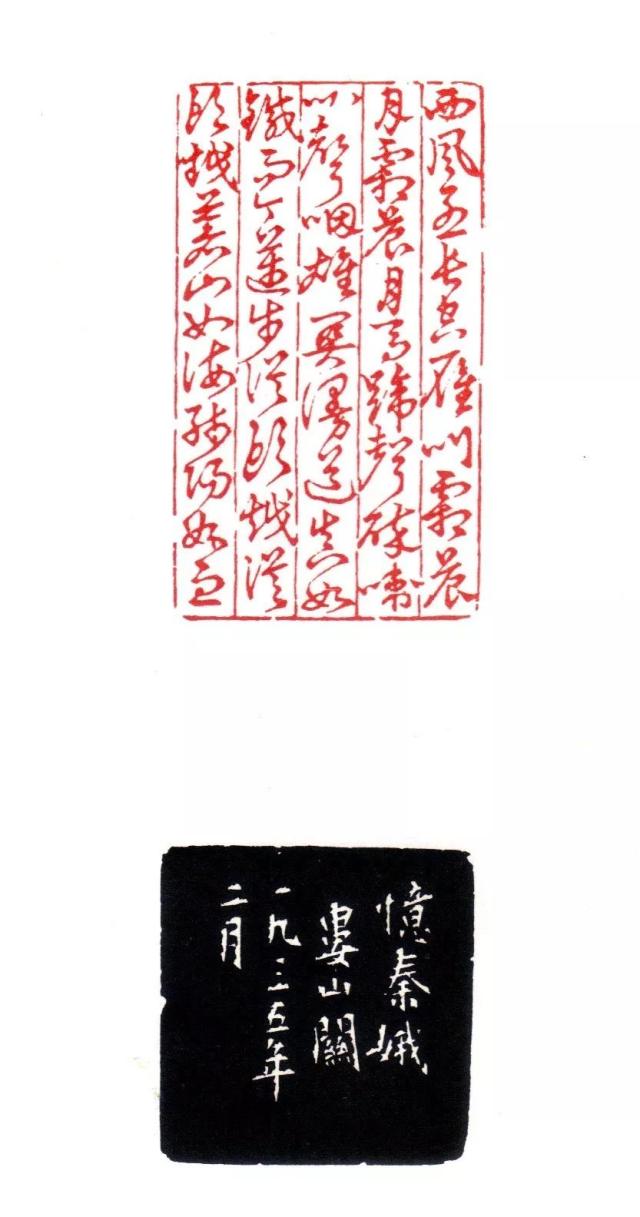 西風烈長空雁叫霜晨
月霜晨月馬蹄聲碎喇
叭聲咽雄關漫道真如
鐵而今邁步從頭越從
頭越蒼山如海殘陽如血
憶秦娥
婁山關
一九三五年
二月